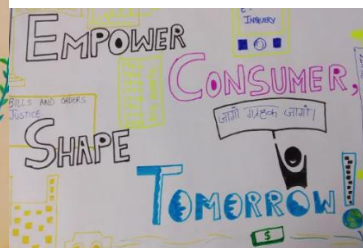 EMPOWER
INQUIRY
CONSUMER,
BILLS AND ORDERS
JUSTICE
जागो ग्राहक जागो!
SHAPE
TOMORROW!
$